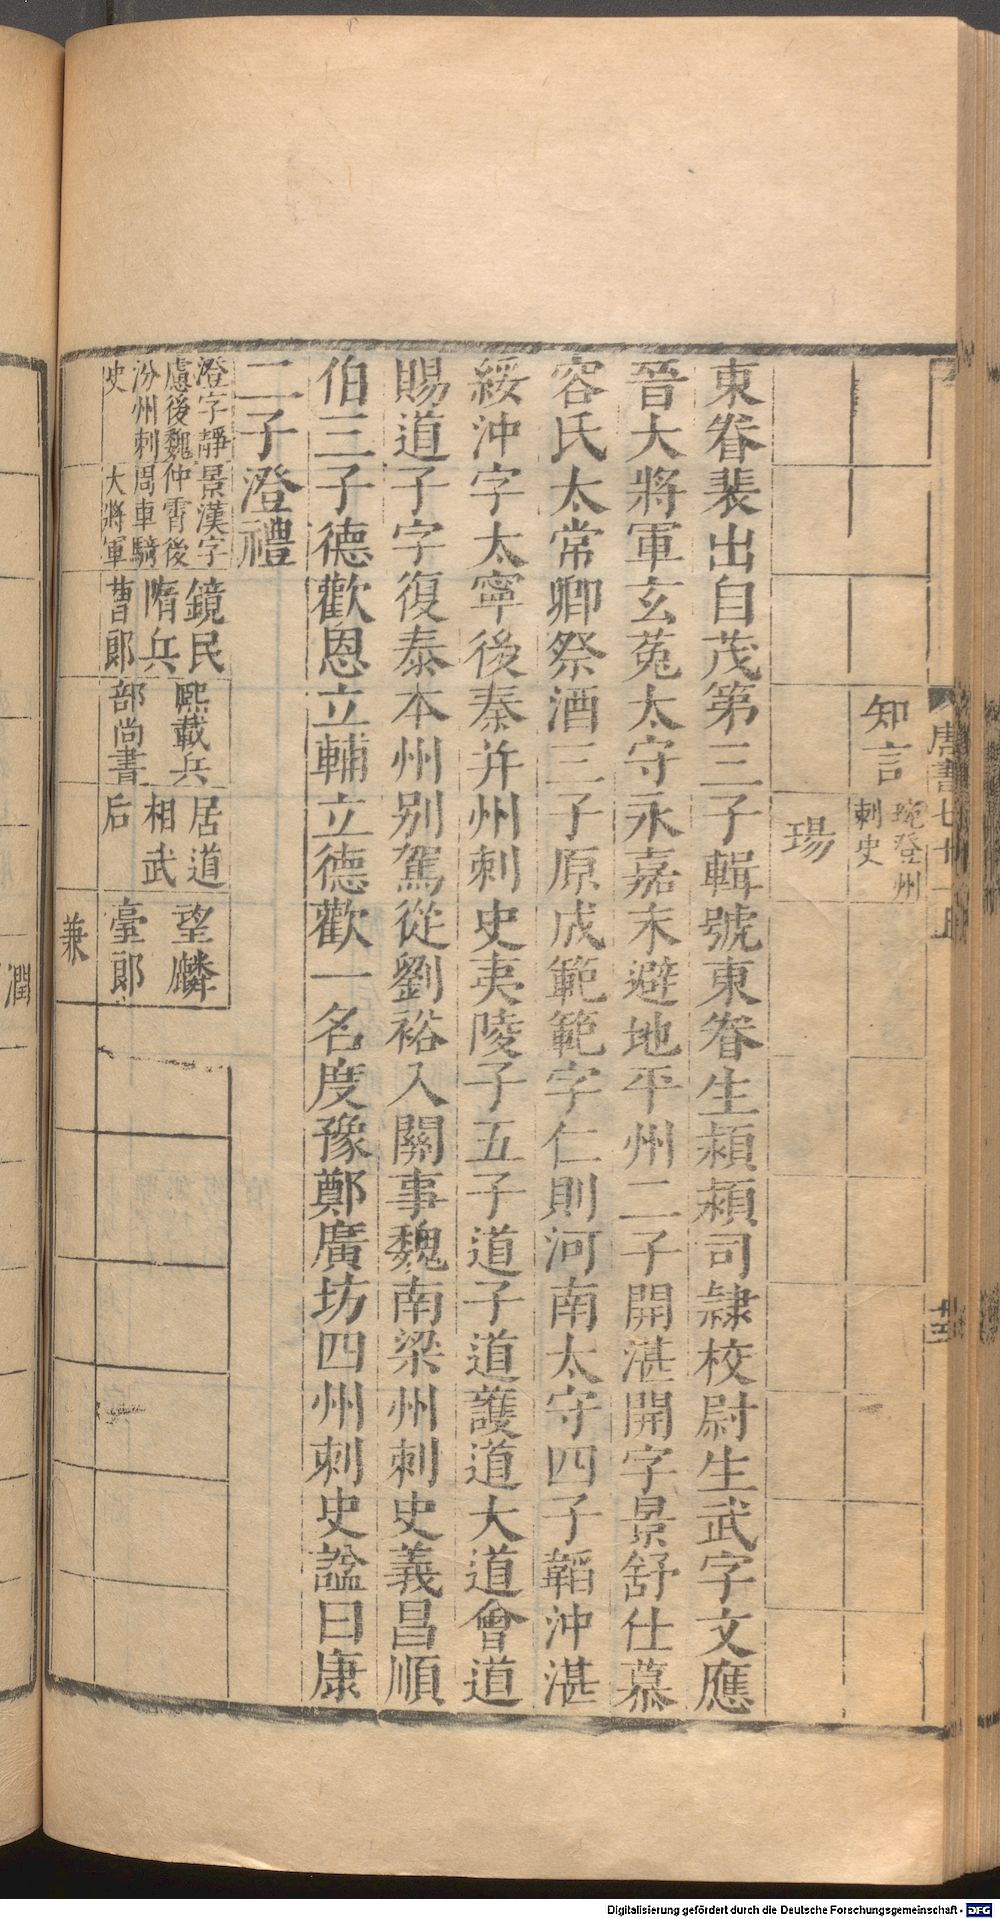 知言
琬登州
刺史
瑒
東眷裴出自茂第三子輯號東眷生潁潁司隷校尉生武字文應
晉大將軍玄菟太守永嘉末避地平州二子開湛開字景舒仕慕
容氏太常卿祭酒三子原成範範字仁則河南太守四子韜沖湛
綏沖字太寧後秦并州刺史夷陵子五子道子道護道大道會道
賜道子字復泰本州别駕從劉裕入關事魏南梁州刺史義昌順
伯三子德歡恩立輔立德歡一名度豫鄭廣坊四州刺史諡曰康
二子澄禮
澄字靜
慮後魏
汾州刺
史
景漢字
仲霄後
周車騎
大將軍
鏡民
隋兵
曹郎
熙載兵
部尚書
居道
相武
后
望麟
臺郎
兼
潤
Digitalisierung gefördert durch die Deutsche Forschungsgemeinschaft - DFG